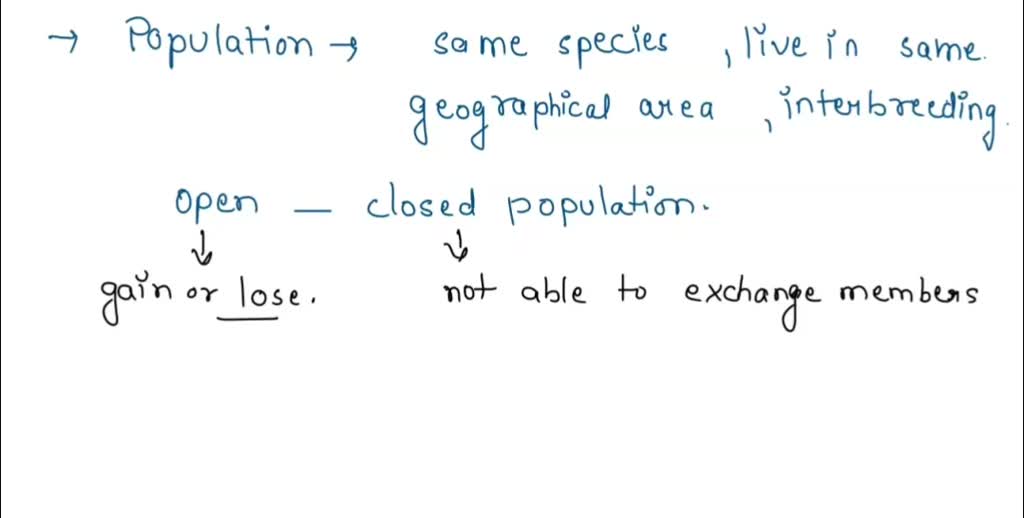 → Population → same species , live in same.
geographical area , interbreeding.
open — closed population.
↓ ↓
gain or lose. not able to exchange members